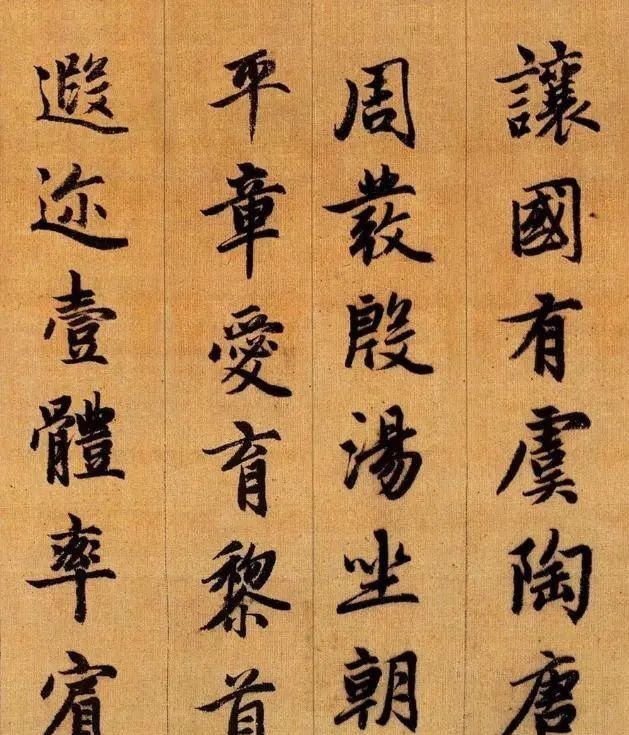 讓國有虞陶唐
周發殷湯坐朝
平章愛育黎首
遐迩壹體率賓